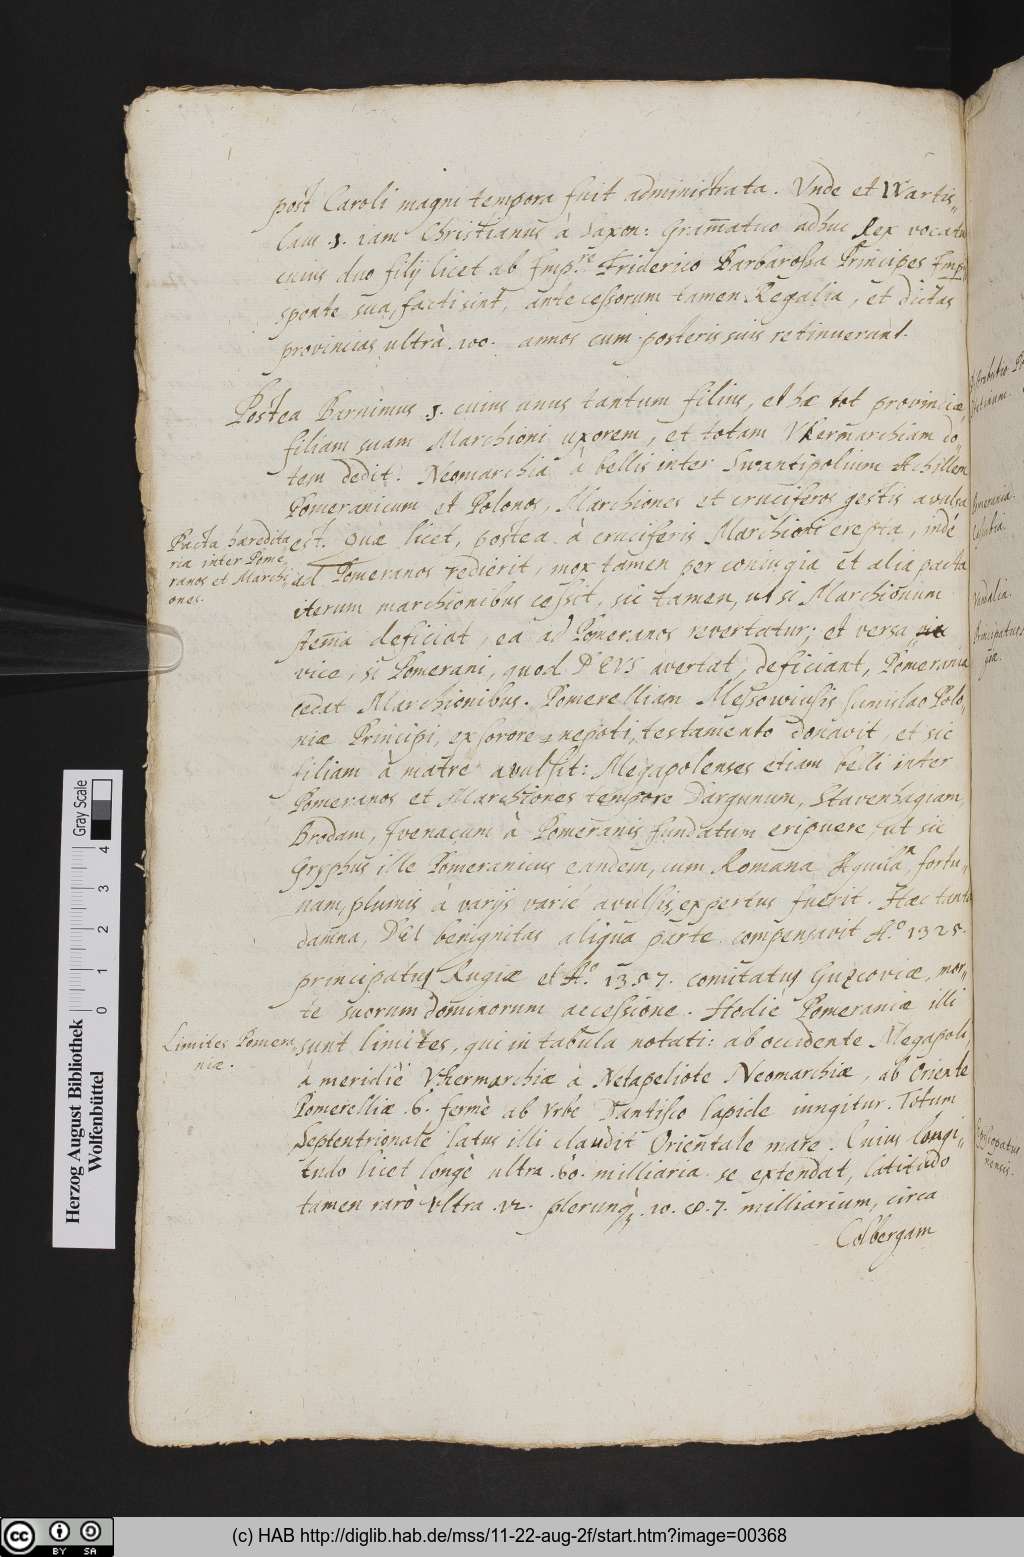 post Caroli magni tempora fuit administrata. Vnde et Wartis„
laus .1. iam Christianus à Saxon: Gram̄atico adhuc Rex vocatur
cuius duo filij licet ab Imp.re Friderico Barbarossa Principes Imp:
sponte sua, facti sint, antecessorum tamen Regalia, et dictas
provincias ultrà .100. annos cum posteris suis retinuerunt.
Postea Barnimus .1. cuius unus tantum filius, et hæ tot provinciæ,
filiam suam Marchioni uxorem, et totam Vkermarchiam do„
tem dedit. Neomarchia à bellis inter Swantipolium Achillem
Pomeranicum et Polonos, Marchiones et cruciferos gestis avulsa
est. Quæ licet, postea à cruciferis Marchioni erepta, inde
ad Pomeranos redierit, mox tamen per coniugia et alia pacta
iterum marchionibus cessit, sic tamen, ut si Marchionum
stem̄a deficiat, ea ad Pomeranos revertatur; et versa
vice, si Pomerani, quod DEVS avertat, deficiant, Pomerania
cedat Marchionibus. Pomerelliam Messowinsis Sunislao Polo„
niæ Principi, ex sorore nepoti, testamento donavit, et sic
filiam à matre avulsit: Megapolenses etiam belli inter
Pomeranos et Marchiones tempore Dargunum, Stavenhagiam,
Brodam, Ivenacum à Pomeranis fundatum eripuere, ut sic
Gryphus ille Pomeranicus eandem, cum Romana Aquila, fortu„
nam, plumis à varijs varie avulsis, expertus fuerit. Hæc tanta
damna, DEI benignitas aliqua parte compensavit Ao 1325.
principatus Rugiæ et Ao. 1357. comitatus Guzcoviæ, mor„
te suorum dominorum accessione. Hodie Pomeraniæ illi
sunt limites, qui in tabula notati: ab occidente Megapoli,
à meridie Vkermarchiæ à Netapeliote Neomarchiæ, ab Oriente
Pomerelliæ .6. fermè ab vrbe Dantisco lapide iungitur. Totum
Septentrionale latus illi claudit Orientale mare. Cuius longi„
tudo licet longè ultra .60. milliaria se extendat, latitudo
tamen rarò vltra .12. plerunq3 .10. 8. 7. milliarium, circa
Colbergam
Pacta hæredita
ria inter Pome
ranos et Marchi
ones.
Limites Pomera„
niæ.
Pomerania.
Cassubia.
Vandalia.
Principatus
Episcopatus
Herzog August Bibliothek
Wolfenbüttel
Gray Scale
0 1 2 3 4
cc BY SA
(c) HAB http://diglib.hab.de/mss/11-22-aug-2f/start.htm?image=00368